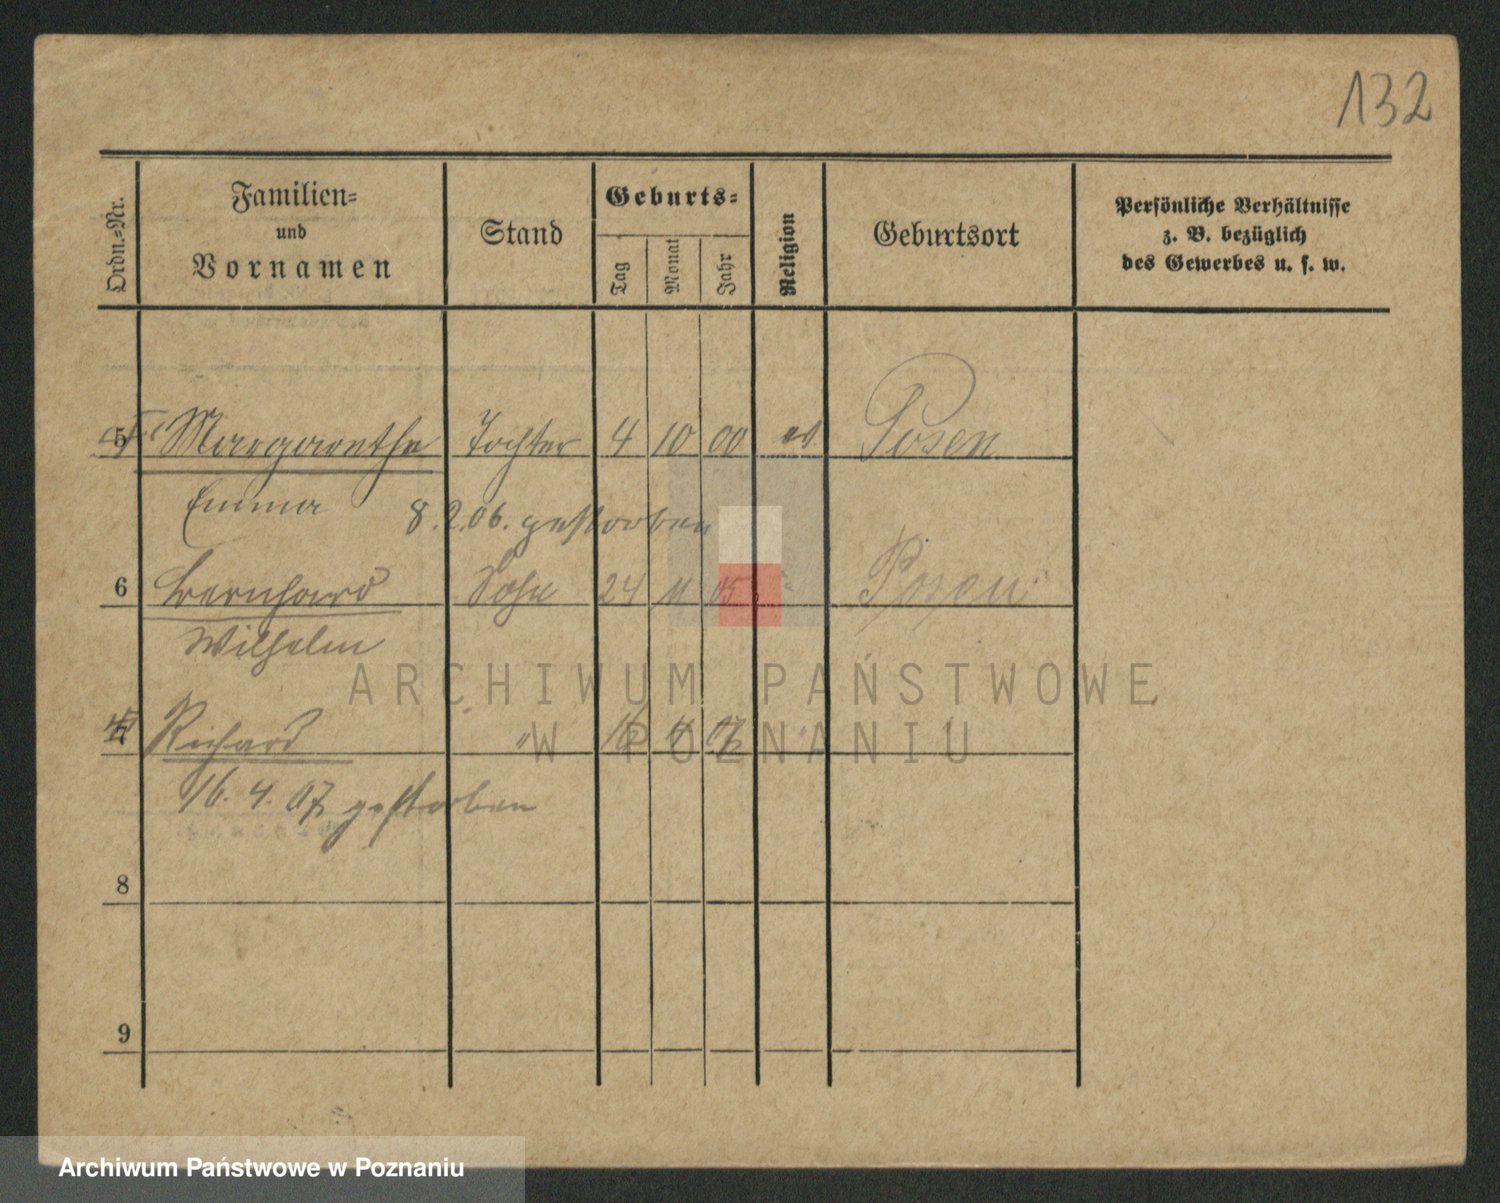 132
Ordn.=Nr.
Familien=
und
Vornamen
Stand
Geburts=
Tag
Monat
Jahr
Religion
Geburtsort
Persönliche Verhältnisse
z. B. bezüglich
des Gewerbes u. s. w.
5 Margarethe Tochter 4 10 00 ev Posen
Emma 8.2.06. gestorben
6 Bernhard Sohn 24 11 05 Posen
Wilhelm
ARCHIWUM PAŃSTWOWE
W POZNANIU
Richard " 16 4 07
16. 4. 07 gestorben
8
9
Archiwum Państwowe w Poznaniu